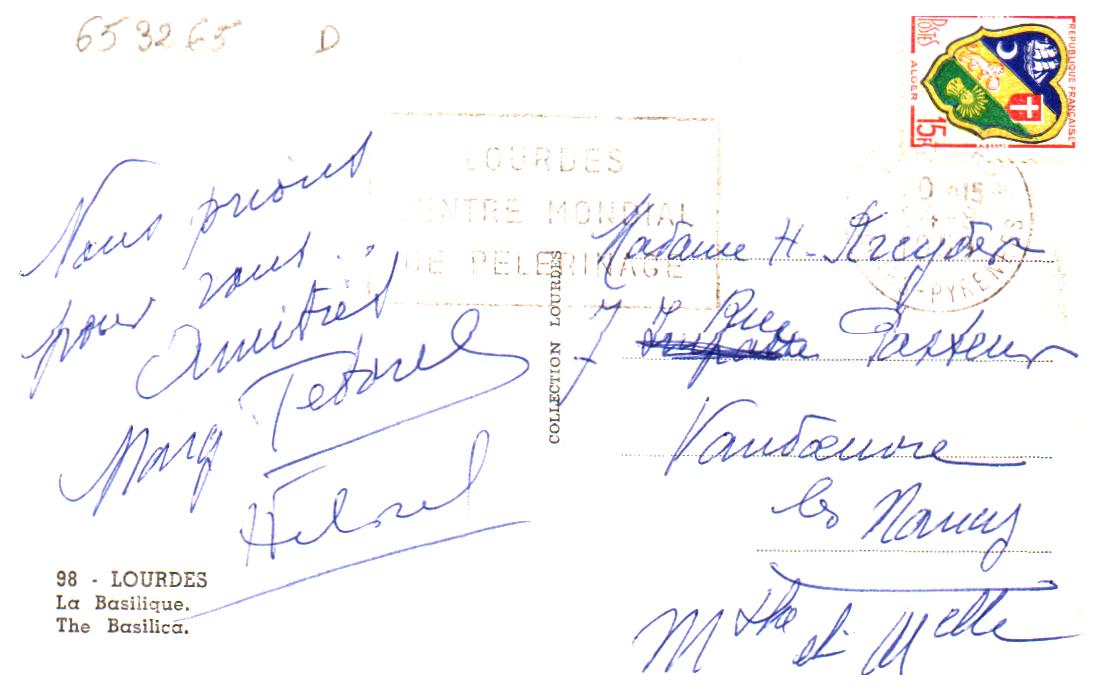 653265 D
POSTES
ALGER
REPUBLIQUE FRANÇAISE
15F
LOURDES
CENTRE MONDIAL
DE PELERINAGE
PYRENEES
Nous prions
pour vous.
Amitiés
Marg
COLLECTION LOURDES
Madame H. Kreyder
7 Rue Pasteur
Vandœuvre
les Nancy
Mthe et Melle
98 - LOURDES
La Basilique.
The Basilica.